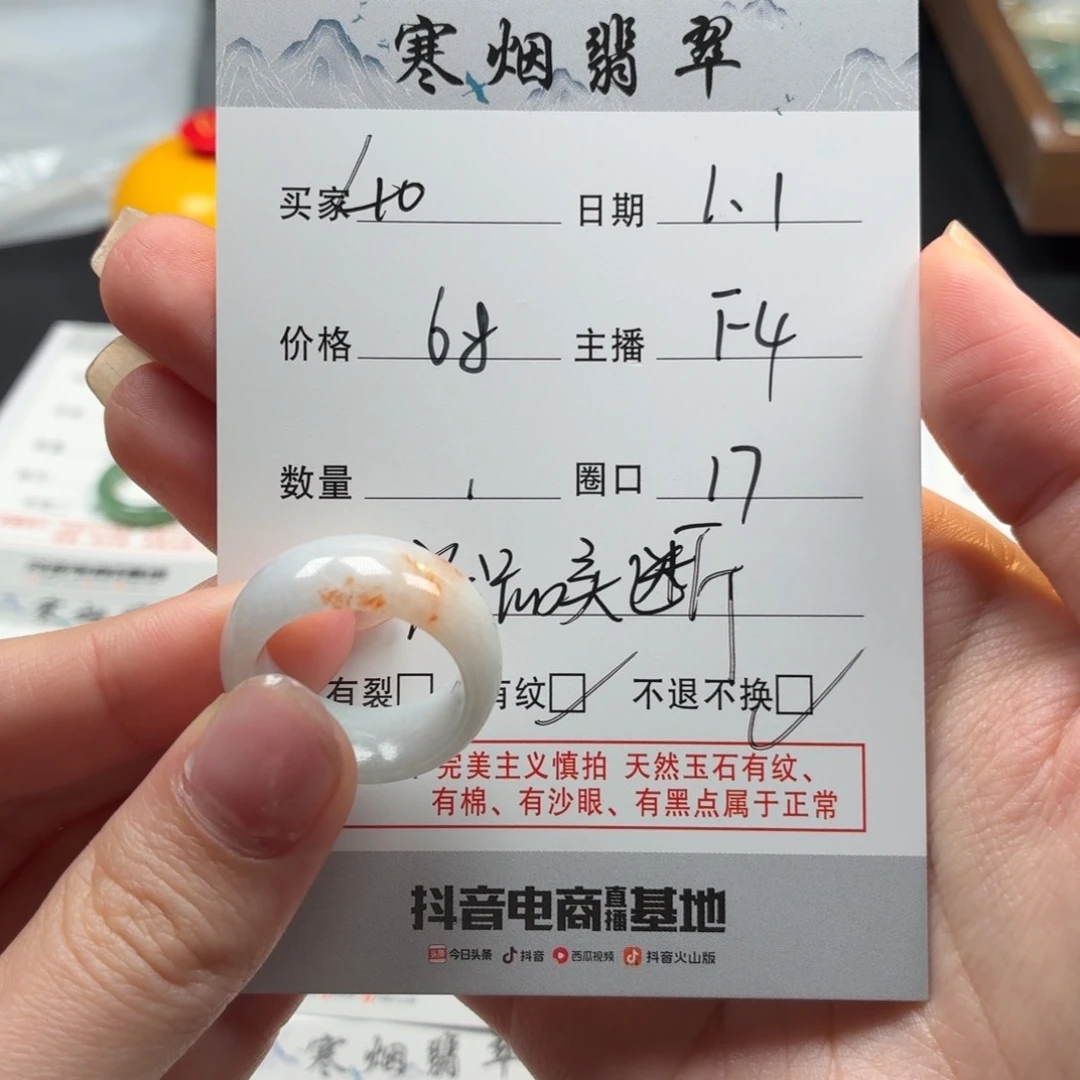 寒烟翡翠
买家 10 日期 1、1
价格 68 主播 F4
数量 1 圈口 17
有裂 有纹 不退不换
完美主义慎拍 天然玉石有纹、
有棉、有沙眼、有黑点属于正常
抖音电商直播基地
头条 今日头条 抖音 西瓜视频 抖音火山版
寒烟翡